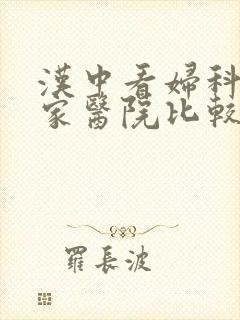 漢中看婦科
家醫院比較
羅長波